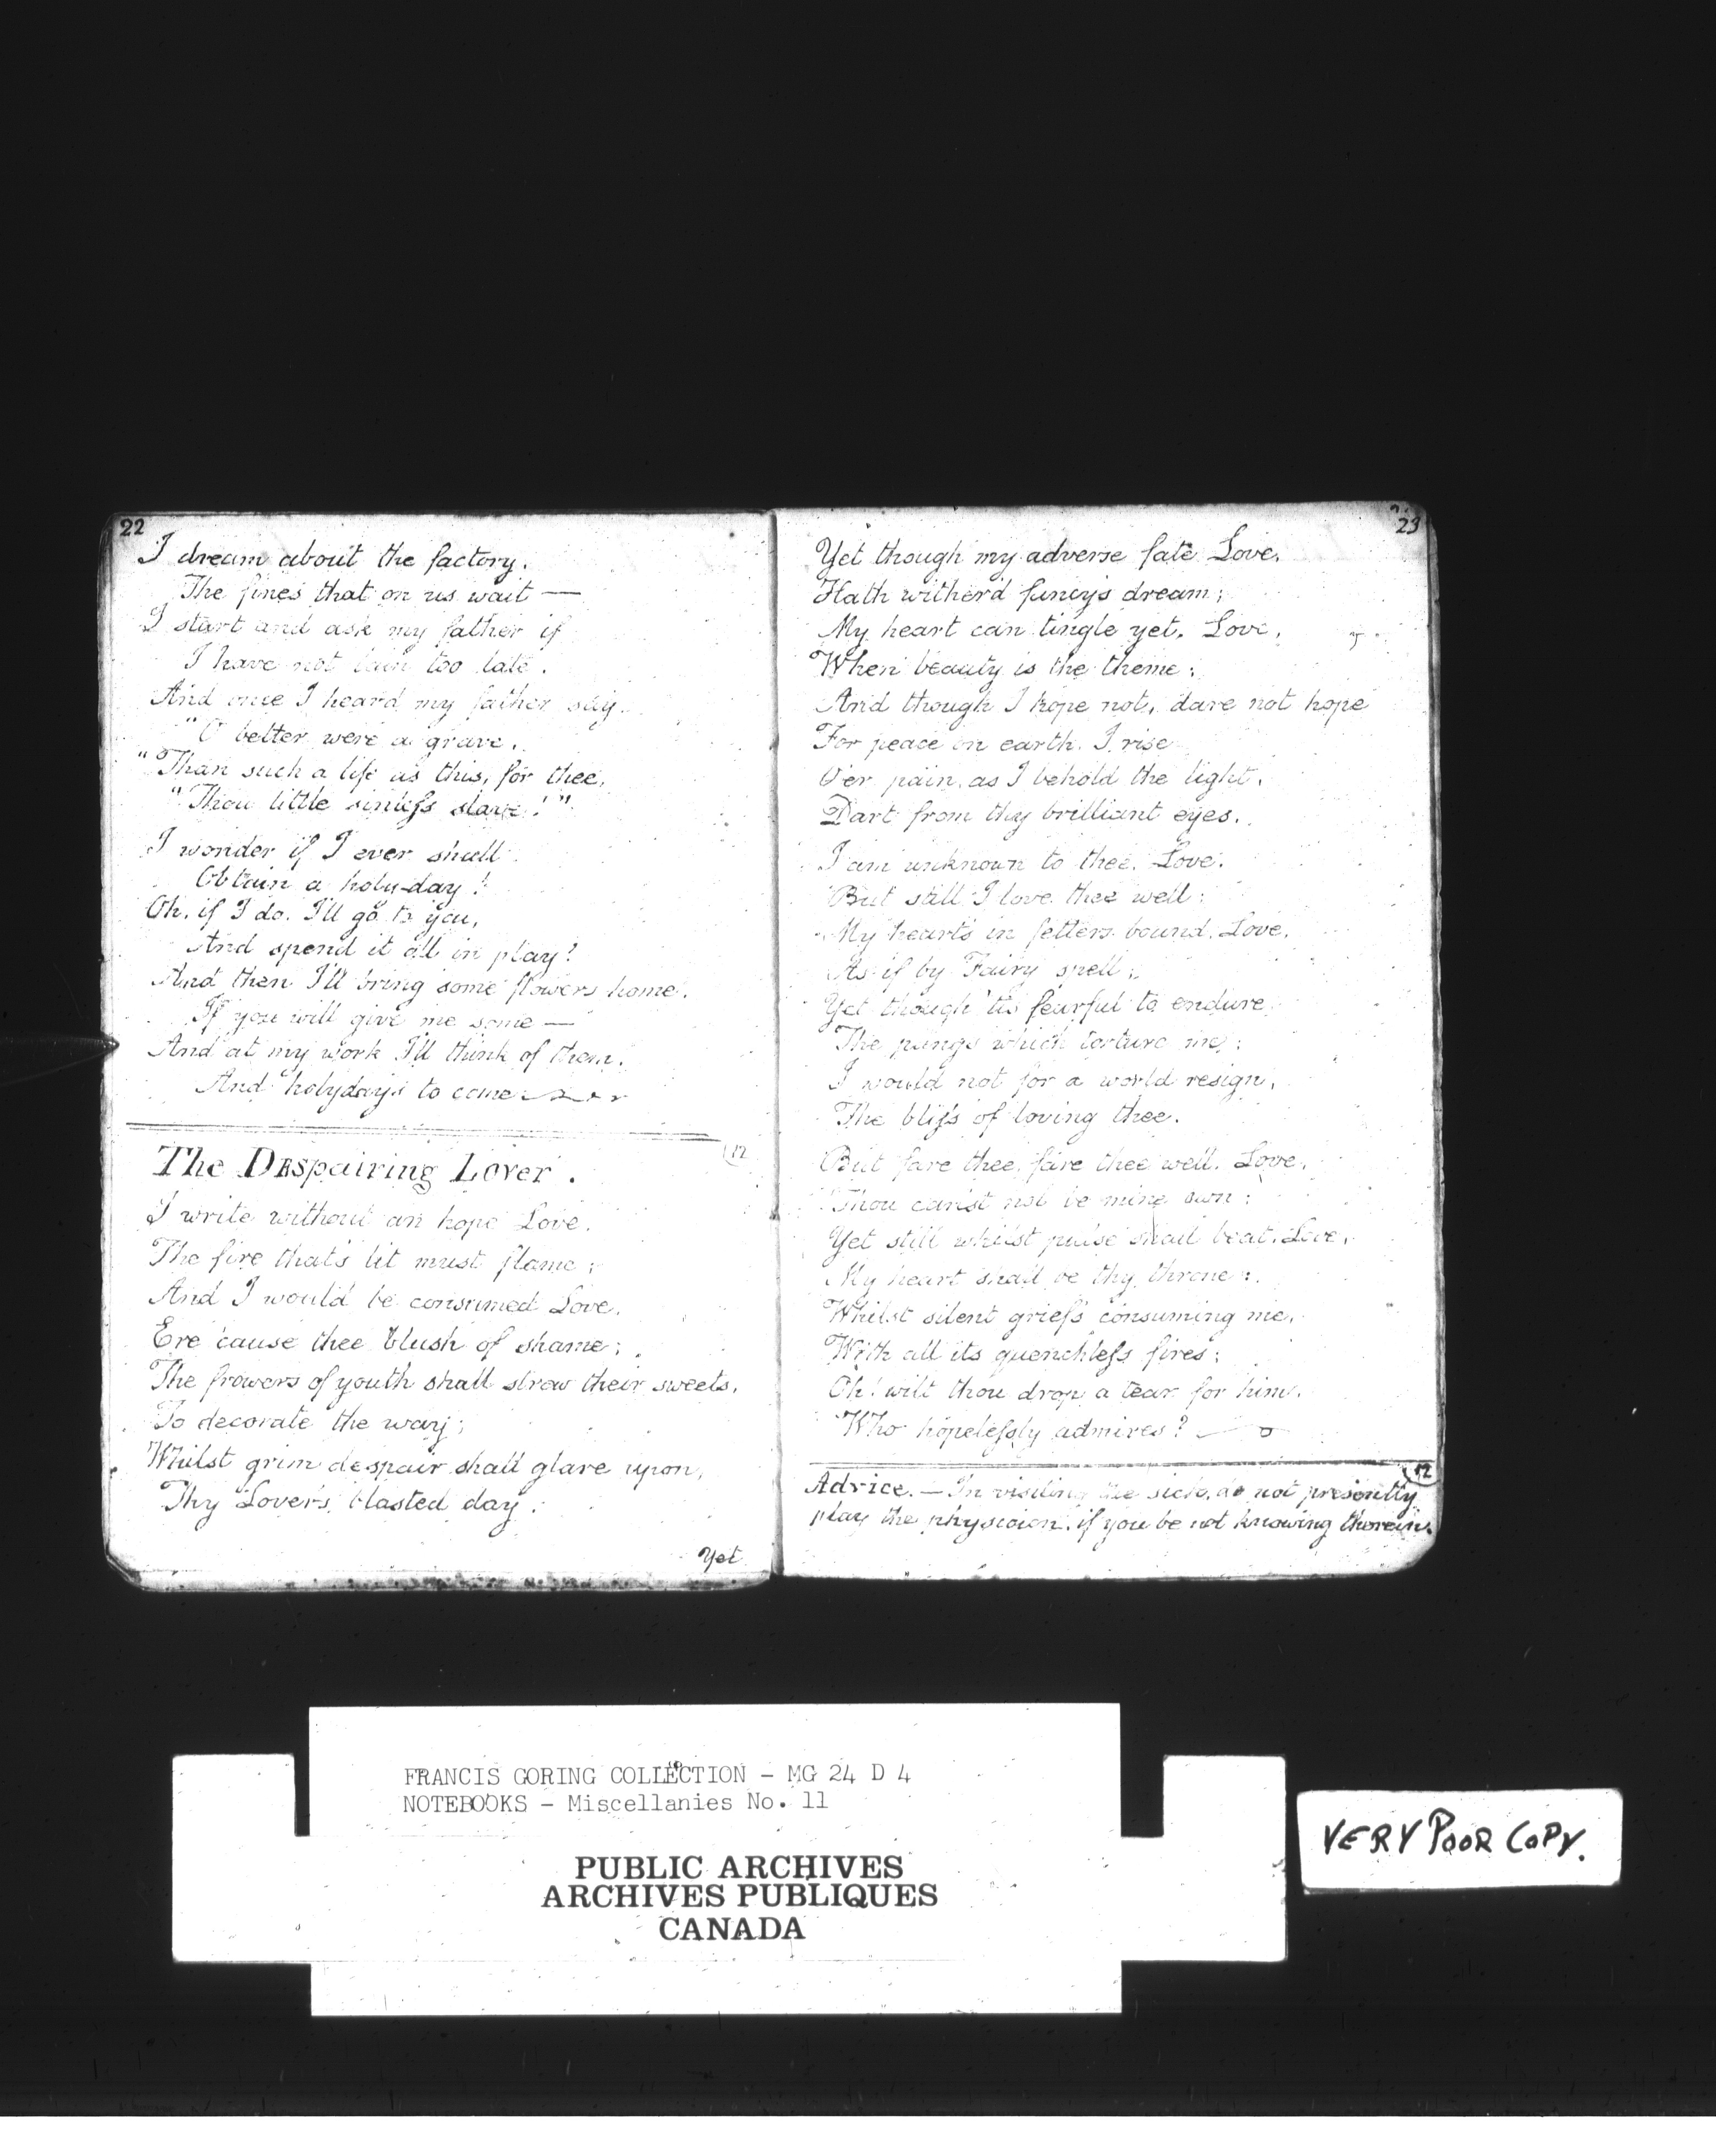 22
I dream about the factory.
The fines that on us wait —
I start and ask my father if
I have not lain too late.
And once I heard my father say.
"O better were a grave,
"Than such a life as this, for thee,
"Thou little sinless slave!"
I wonder if I ever shall
Obtain a holy-day!
Oh, if I do. I'll go to you,
And spend it all in play!
And then I'll bring some flowers home.
If you will give me some —
And at my work I'll think of them.
And holydays to come
12
The Despairing Lover.
I write without an hope Love.
The fire that's lit must flame;
And I would be consumed Love.
Ere cause thee blush of shame;
The frowers of youth shall strew their sweets.
To decorate the way;
Whilst grim despair shall glare upon,
Thy Lover's blasted day:
Yet
23
Yet though my adverse fate Love.
Hath wither'd fancy's dream;
My heart can tingle yet. Love,
When beauty is the theme:
And though I hope not, dare not hope
For peace on earth. I rise
O'er pain, as I behold the light.
Dart from thy brilliant eyes.
I am unknown to thee. Love.
But still I love thee well:
My heart's in fetters bound. Love.
As if by Fairy spell;
Yet though 'tis fearful to endure
The pangs which torture me;
I would not for a world resign,
The bliss of loving thee.
But fare thee, fare thee well. Love.
Thou can'st not be mine own:
Yet still whilst pulse shall beat. Love,
My heart shall be thy throne:
Whilst silent grief's consuming me.
With all its quenchless fires:
Oh! wilt thou drop a tear for him.
Who hopelessly admires?
12
Advice. — In visiting the sick, do not presently
play the physician, if you be not knowing therein.
FRANCIS GORING COLLECTION - MG 24 D 4
NOTEBOOKS - Miscellanies No. 11
PUBLIC ARCHIVES
ARCHIVES PUBLIQUES
CANADA
VERY POOR COPY.